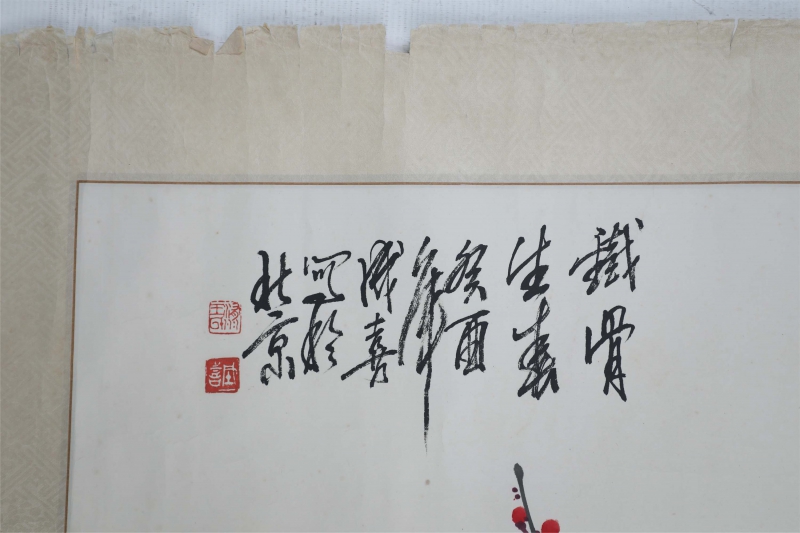 鐵骨
生春
癸酉
年
成喜
寫於
北京